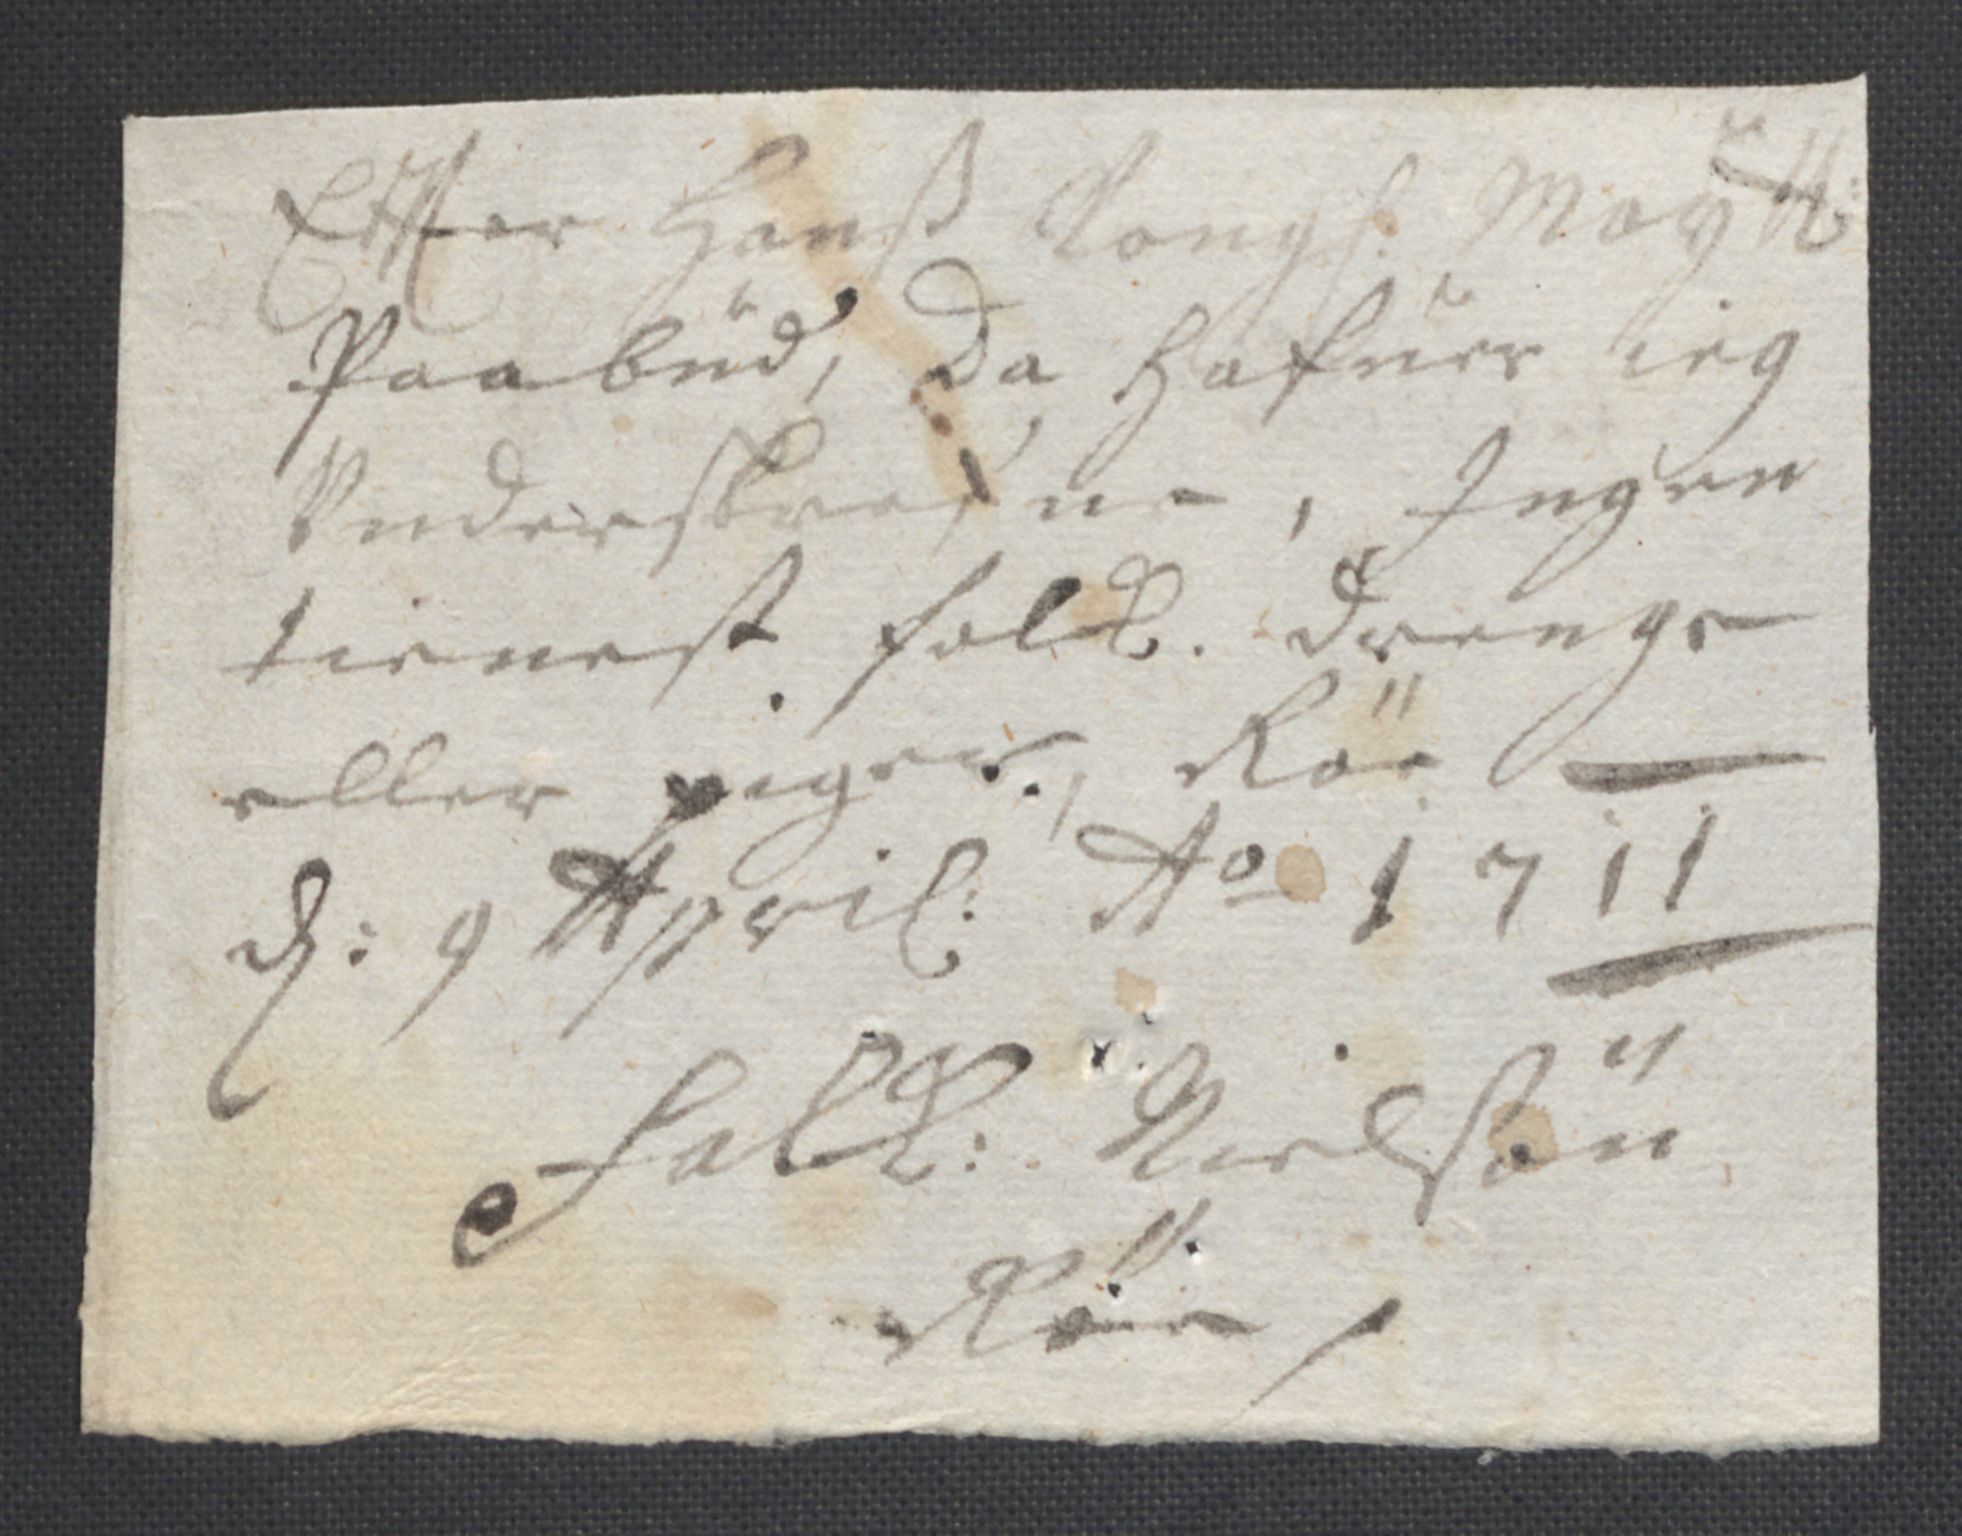 Effter Hanß Kongl: Mayᵗᵗ:
Paabud, Da Hafuer ieg
Underskrefne, Ingen
tienest folck. drenge
eller piger, Röe
d: 9 April: Aº 1711
Falck: Nielsön
Röe